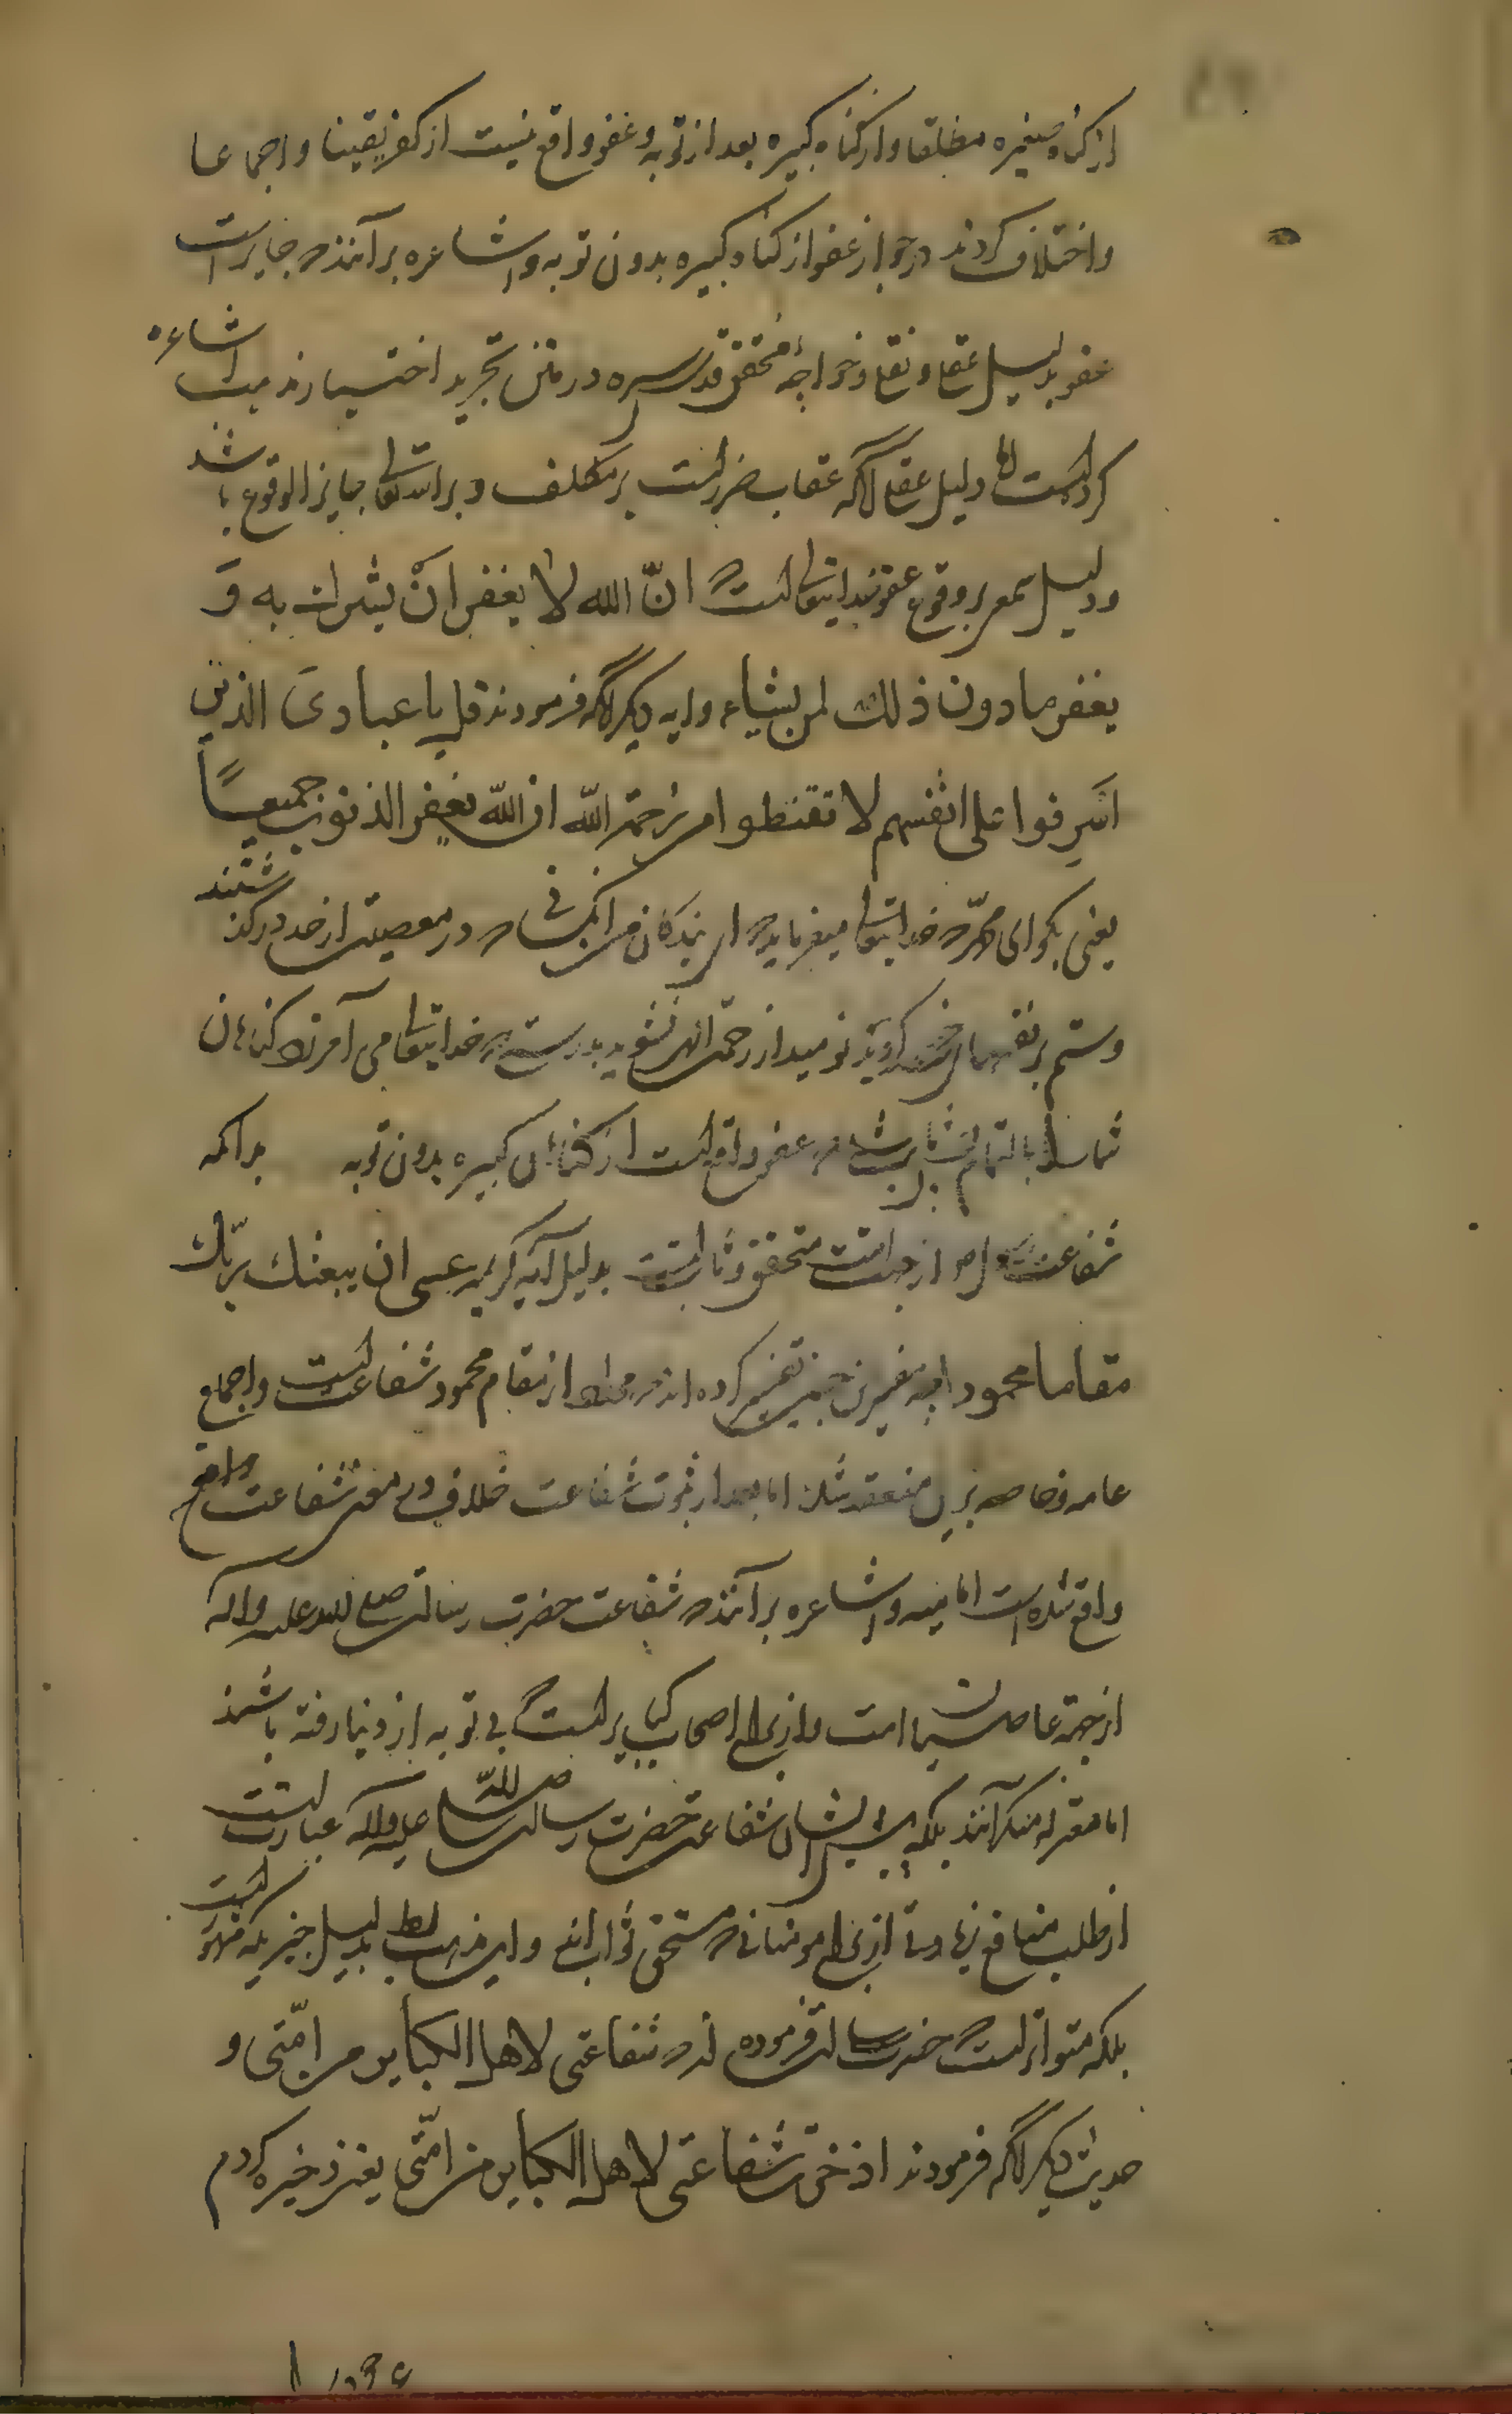 از گناه صغیره مطلقا و از گناه کبیره بعد از توبه و عفو واقع نیست از کفر یقینا و اجماعا
و اختلاف کردند در جواز عفو از گناه کبیره بدون توبه و اشاعره بر آنند که جایز است
عفو بدلیل عقلی و نقلی و خواجه محقق قدس سره در متن تجرید اختیار مذهب اشاعره
کرده است اما دلیل عقلی آنکه عقاب ضرر است بر مکلف و بر الله تعالی جایز الوقوع باشد
و دلیل سمعی بر وقوع عفو خدایتعالی است که انّ الله لا یغفر انْ یشرك به وَ
یغفر مادون ذلك لمن یشاء و ایه دیگر آنکه فرمودند قل یا عبادیَ الذین
اسرفوا علی انفسهم لا تقنطوا من رحمة اللّه ان اللّه یغفر الذنوب جمیعاً
یعنی بگو ای محمّد که خدایتعالی میفرماید که ای بندگان من آنکسانی که در معصیت از حد در گذشتند
و ستم بر نفسهای خود کردید نومید از رحمت الهی نشوید بدرستی که خدایتعالی می آمرزد گناهان
شما را بالتمام پس ثابت شد که عفو واقع است از گناهان کبیره بدون توبه بدانکه
شفاعت رسول از جهت امت متحقق و ثابتست بدلیل آیه کریمه عسی ان یبعثك ربّك
مقاما محمودا چه مفسرین چنین تفسیر کرده اند که مراد از مقام محمود شفاعتست و اجماع
عامه و خاصه برین منعقد شد اما بعد از ثبوت شفاعت خلاف در معنی شفاعت واقع
واقع شده است امامیه و اشاعره بر آنند که شفاعت حضرت رسالت صلی الله علیه واله
از جهة عاصیان امت و از برای اصحاب کبایر است که بی توبه از دنیا رفته باشند
اما معتزله منکر آنند بلکه پیش ایشان شفاعت حضرت رسالت صلی اللّه علیه واله عبارتست
از طلب منافع زیادتی از برای مومنانی که مستحق ثواب اند و این مذهب باطل است بدلیل خبریکه مشهور است
بلکه متواتر است که حضرت رسالت فرموده اند که شفاعتی لاهل الکبایر من امّتی و
حدیث دیگر آنکه فرمودند ادخرت شفاعتی لاهل الکبایر من امّتی یعنی ذخیره کردم